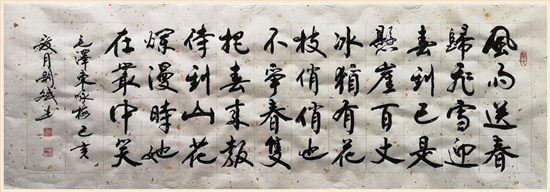 風雨送春
歸飛雪迎
春到已是
懸崖百丈
冰猶有花
枝俏俏也
不爭春隻
把春来報
待到山花
爛漫時她
在叢中笑
毛澤東咏梅己亥
月